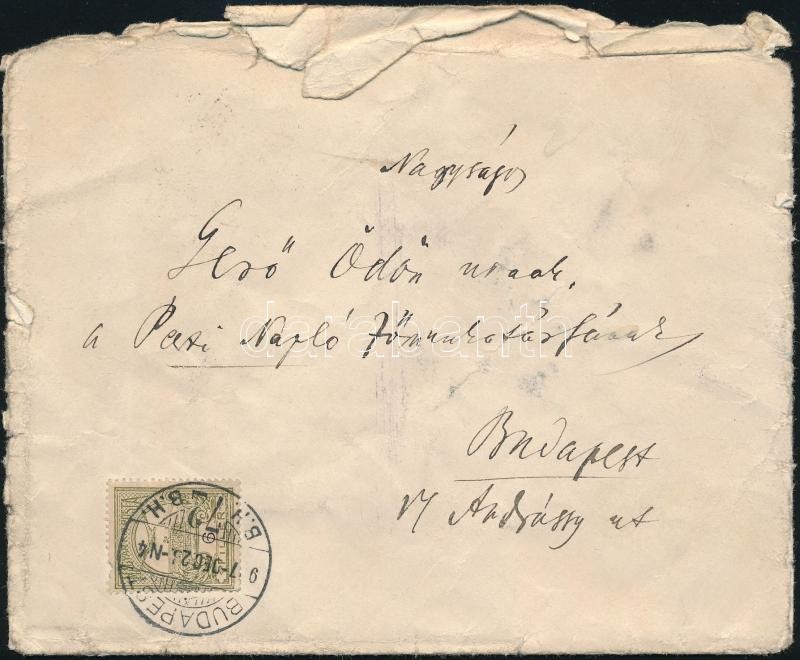 Nagyságos
Gerő Ödön urnak,
a Pesti Napló főmunkatársának
Budapest
VI Andrássy ut
BUDAPEST
9
darabanth